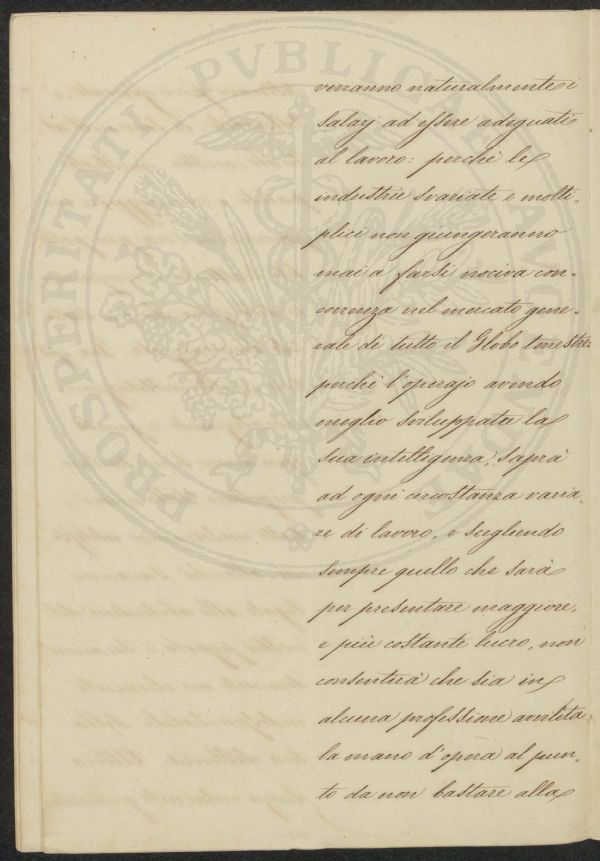 PROSPERITATI PVBLICAE AVGENDAE
verranno naturalmente i
salarj ad essere adeguati
al lavoro: perchè le
industrie svariate e molti-
plici non giungeranno
mai a farsi nociva con-
correnza nel mercato gene-
rale di tutto il Globo terrestre
perchè l'operajo avendo
meglio sviluppata la
sua intelligenza, saprà
ad ogni circostanza varia-
re di lavoro, e scegliendo
sempre quello che sarà
per presentare maggiore,
e più costante lucro, non
consentirà che sia in
alcuna professione avvilita
la mano d'opera al pun-
to da non bastare alla